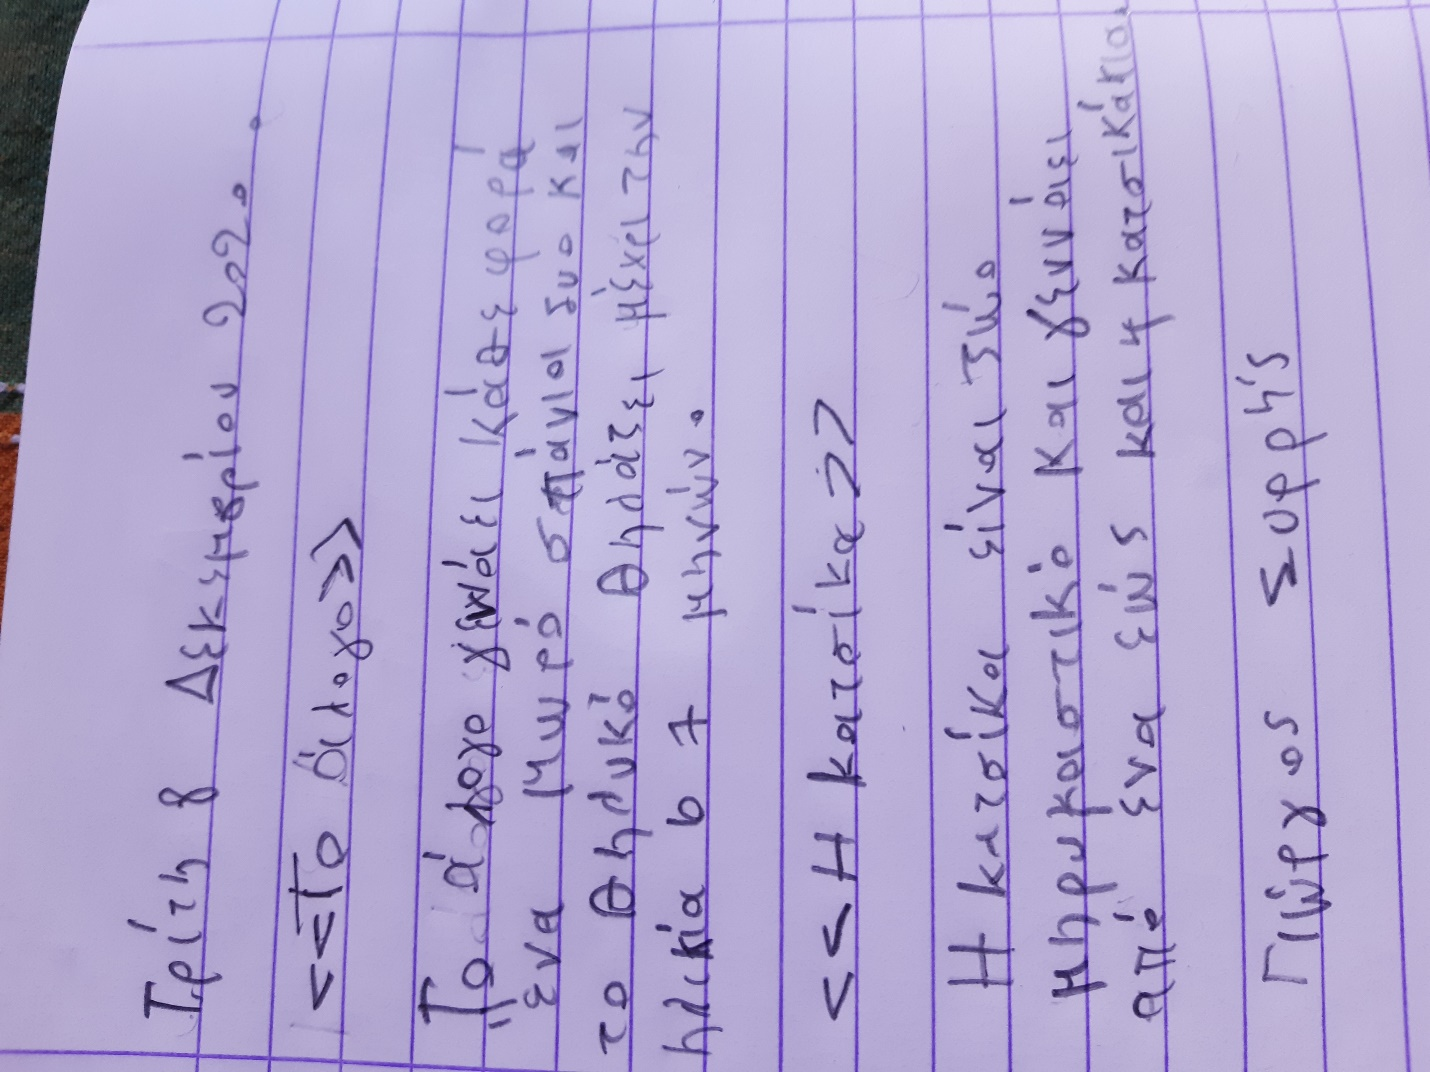 Τρίτη 8 Δεκεμβρίου 2020
<<Το άλογο>>
Το άλογο γεννάει κάθε φορά
ένα μωρό σπάνιοι δυο και
το θηλυκό θηλάζει μέχρι την
ηλικία 6 7 μηνών.
<<Η κατσίκα>>
Η κατσίκα είναι ζώο
μηρυκαστικό και γεννάει
από ένα εώς και 4 κατσικάκια.
Γιώργος Συρρής